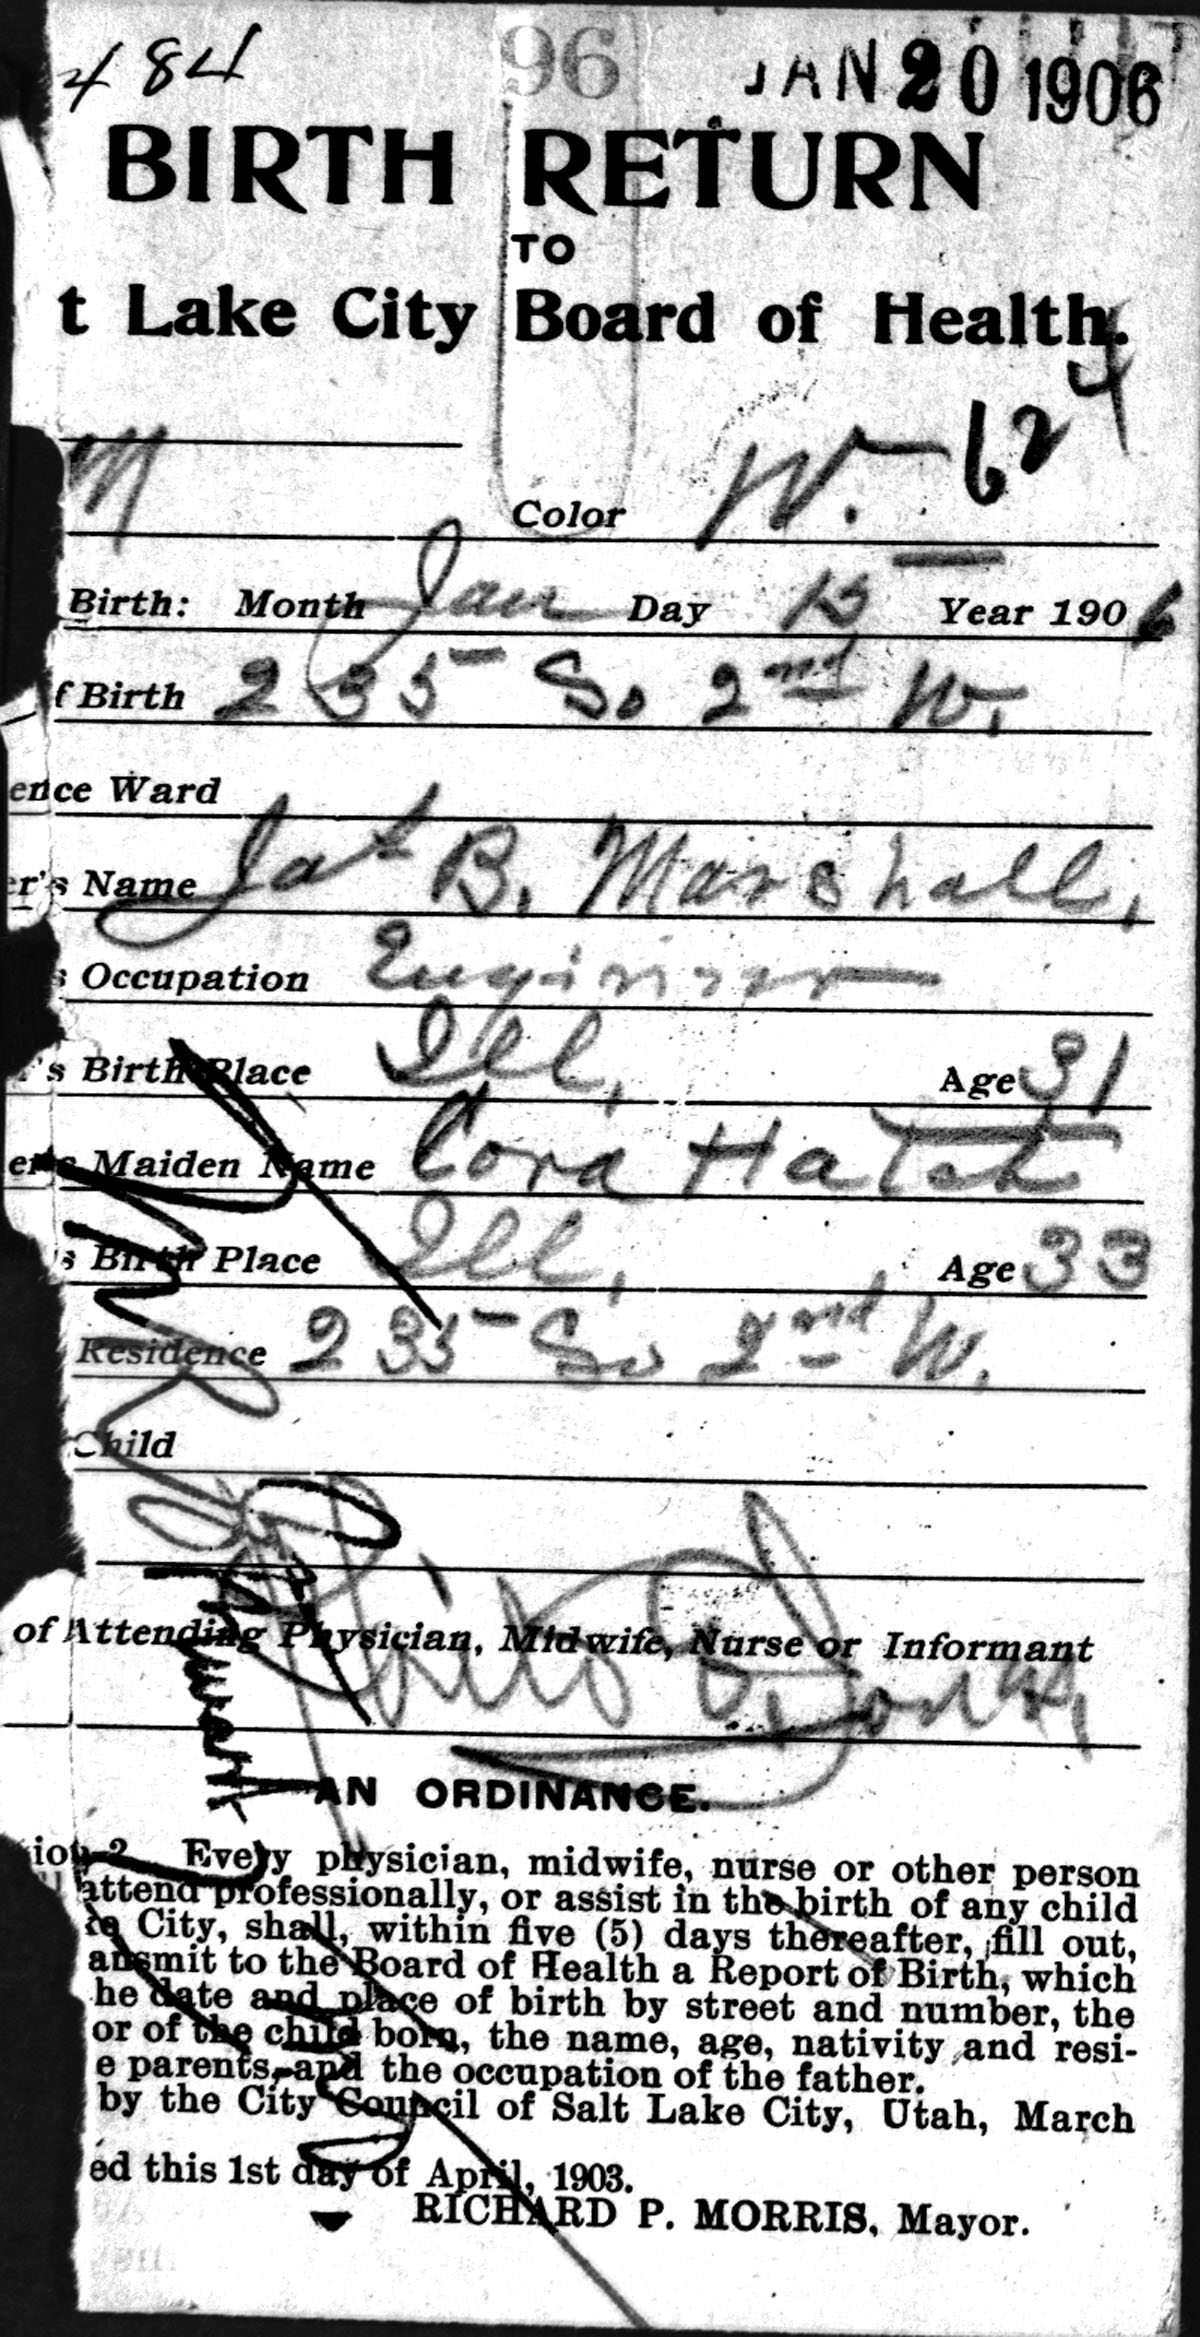 484 96 JAN 20 1906
BIRTH RETURN
TO
t Lake City Board of Health.
M Color W. 624
Birth: Month Jan Day 13 Year 1906
f Birth 235 So 2nd W.
ence Ward
er's Name Jas B. Marshall,
s Occupation Engineer
r's Birth Place Ill, Age 31
er's Maiden Name Cora Hatch
s Birth Place Ill, Age 33
Residence 235 So 2nd W.
Child
of Attending Physician, Midwife, Nurse or Informant
AN ORDINANCE.
ion 2. Every physician, midwife, nurse or other person
attend professionally, or assist in the birth of any child
ke City, shall, within five (5) days thereafter, fill out,
ansmit to the Board of Health a Report of Birth, which
he date and place of birth by street and number, the
or of the child born, the name, age, nativity and resi-
e parents, and the occupation of the father.
by the City Council of Salt Lake City, Utah, March
ed this 1st day of April, 1903.
RICHARD P. MORRIS, Mayor.